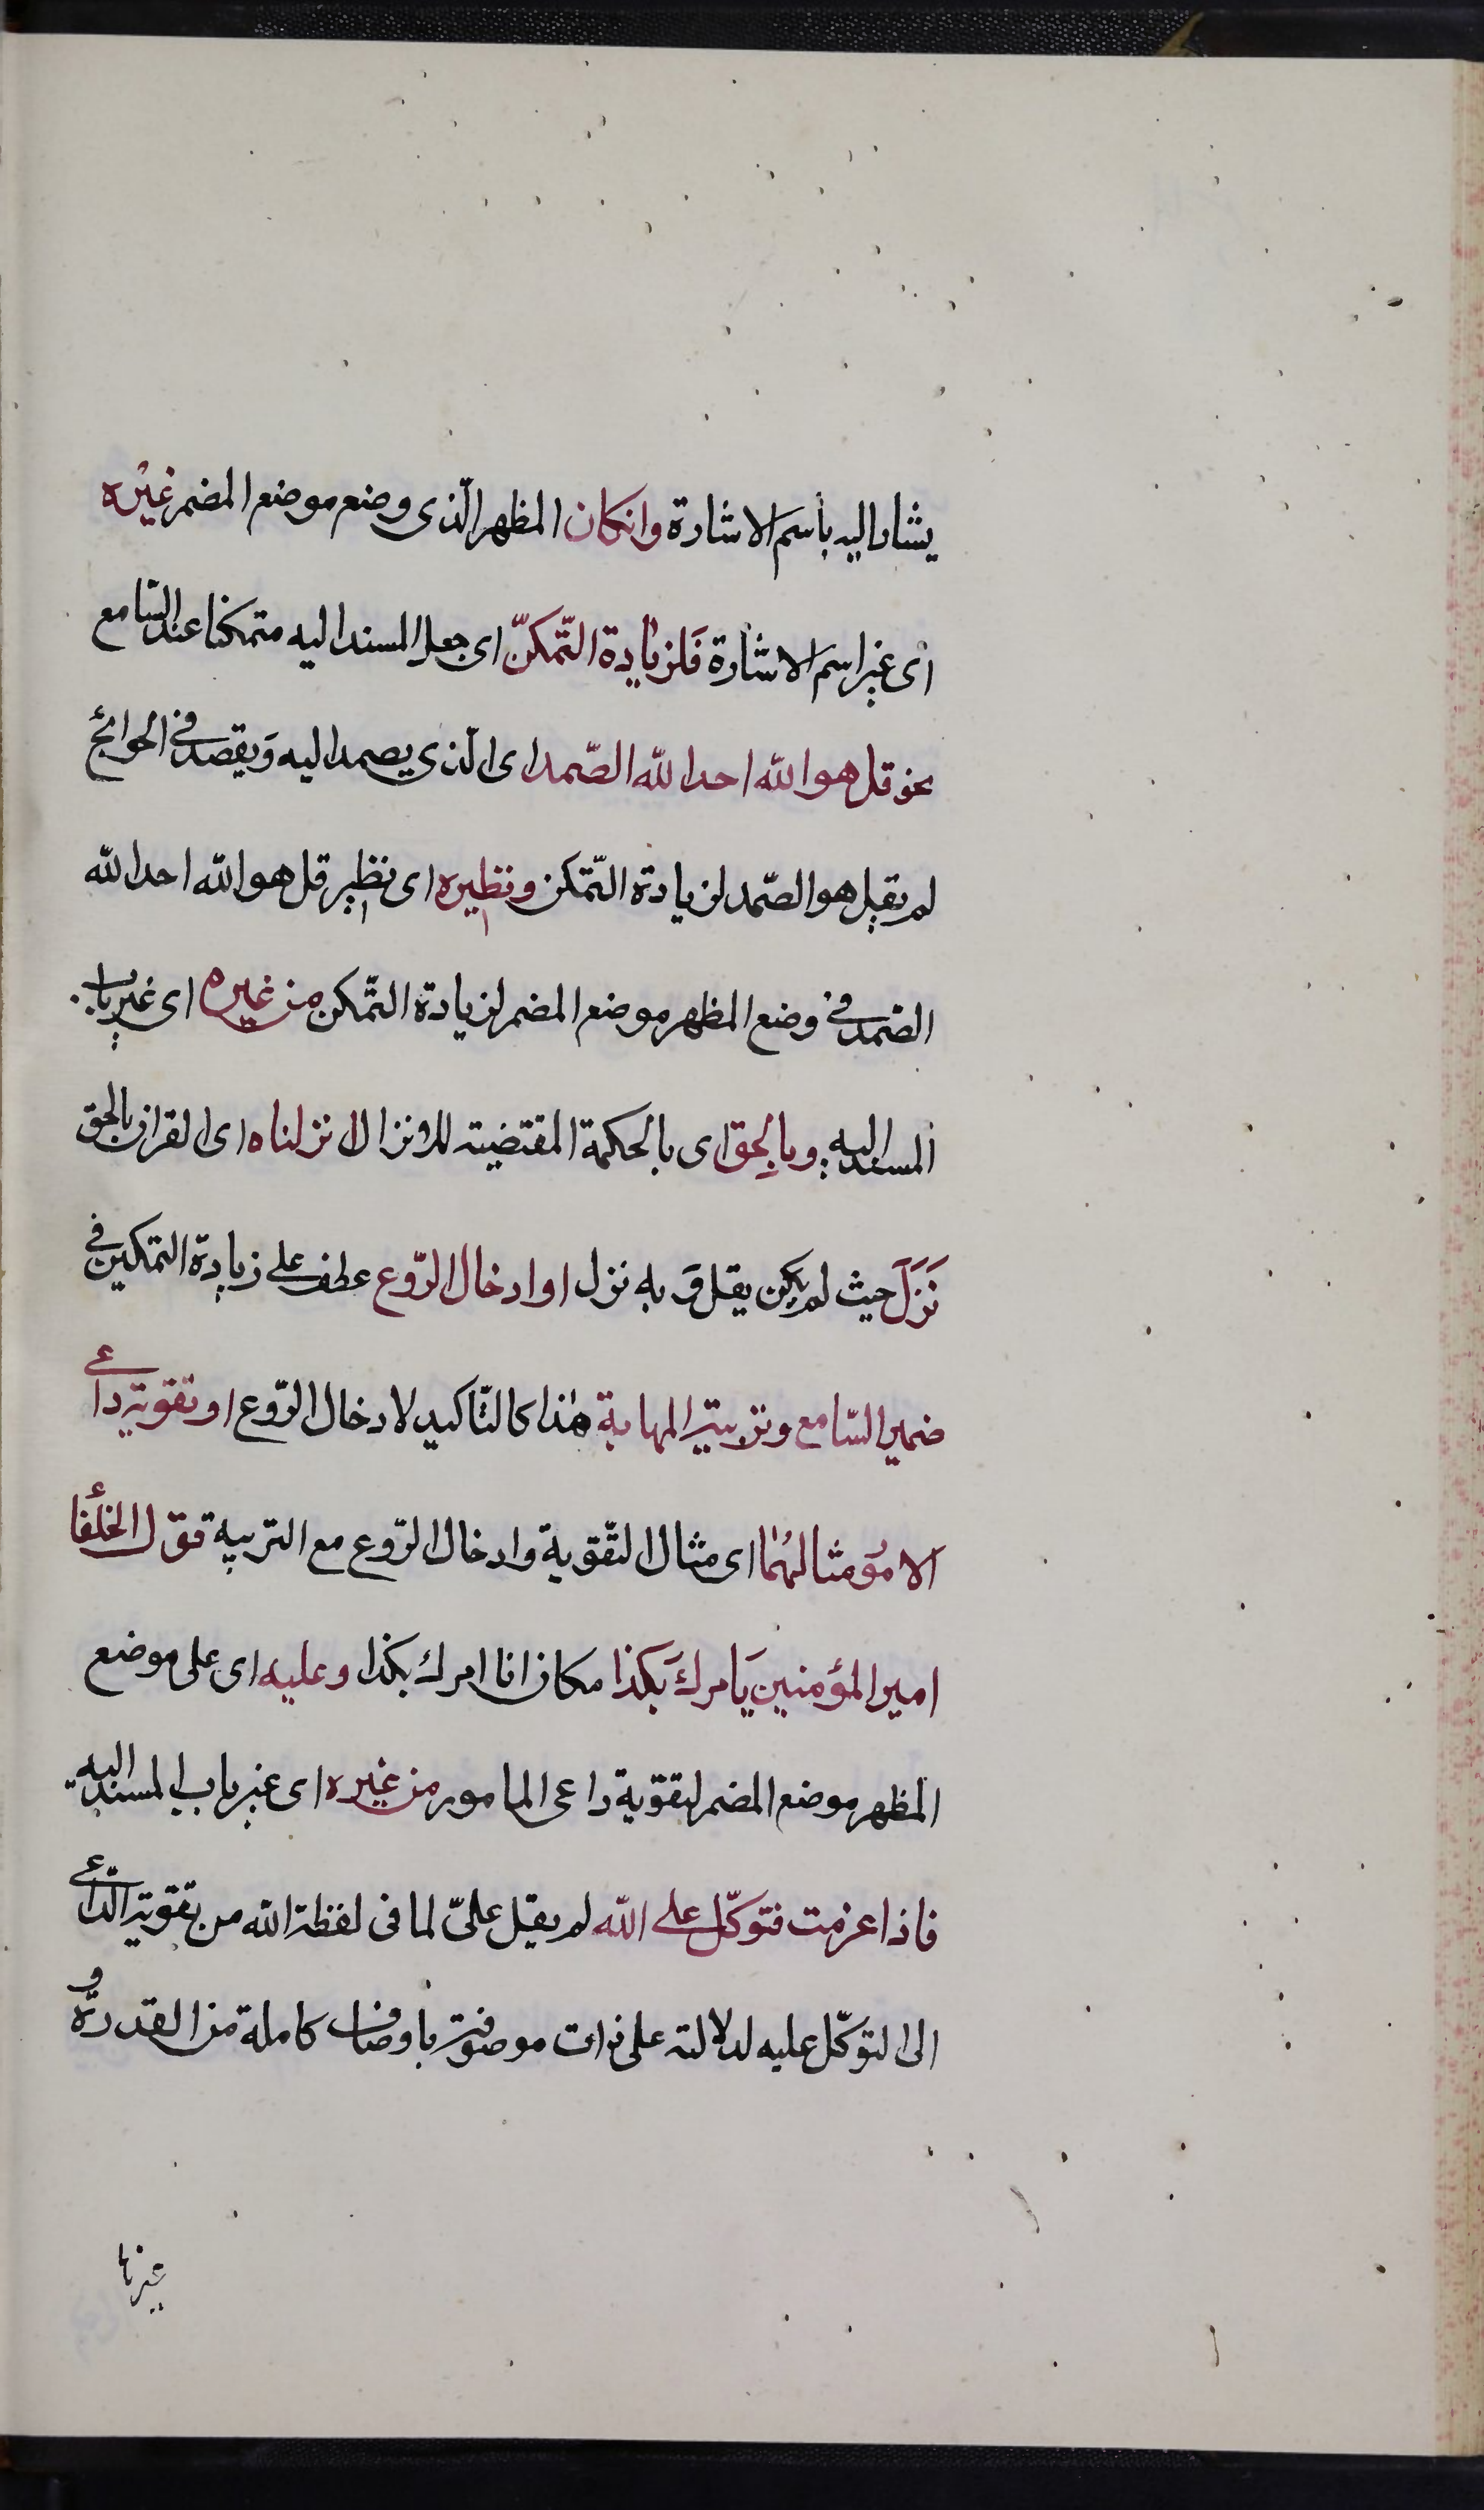 يشار اليه باسم الاشارة وانكان المظهر الّذى وضع موضع المضمر غيره
اى غير اسم الاشارة فلزيادة التّمكنّ اى جعل المسند اليه متمكنا عند السّامع
نحو قل هو اللّه احد اللّه الصّمد اى الّذى يصمد اليه ويقصد فى الحوائج
لم يقل هو الصّمد لزيادة التّمكن ونظيره اى نظير قل هو اللّه احد اللّه
الصّمد فى وضع المظهر موضع المضمر لزيادة التّمكن من غيره اى غير باب
المسند اليه وبالحق اى بالحكمة المقتضية للانزال انزلناه اى القران بالحق
نَزَلَ حيث لم يكن يقل وَ به نزل او ادخال الرّوع عطف على زيادة التمكين فى
ضمير السّامع وتربية المهابة هذا كالتّاكيد لادخال الرّوع او تقوية داعى
الامور مثالهما اى مثال التّقوية وادخال الرّوع مع التربية قول الخلفاء
امير المؤمنين يَامرك بَكذا مكان انا امرك بكذا وعليه اى على موضع
المظهر موضع المضمر لتقوية داعى المامور من غيره اى غير باب المسند اليه
فاذا عزمت فتوكّل على اللّه لم يقل علىّ لما فى لفظة اللّه من تقوية الدّاعى
الى التوكّل عليه لدلالته على ذات موصوفة باوصاف كاملة من القدرة و
غيرها